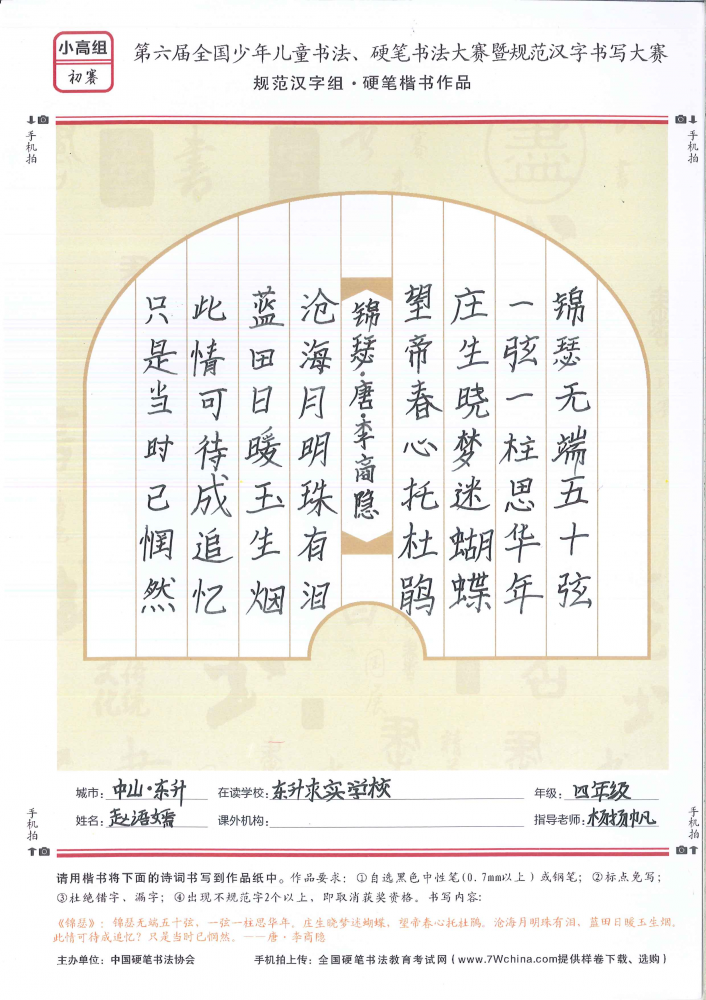 小高组
初赛
第六届全国少年儿童书法、硬笔书法大赛暨规范汉字书写大赛
规范汉字组·硬笔楷书作品
手机拍
手机拍
锦瑟无端五十弦
一弦一柱思华年
庄生晓梦迷蝴蝶
望帝春心托杜鹃
锦瑟·唐·李商隐
沧海月明珠有泪
蓝田日暖玉生烟
此情可待成追忆
只是当时已惘然
城市：中山·东升 在读学校：东升求实学校 年级：四年级
姓名：赵语嫣 课外机构： 指导老师：杨扬帆
手机拍
手机拍
请用楷书将下面的诗词书写到作品纸中。作品要求：①自选黑色中性笔(0.7mm以上)或钢笔；②标点免写；
③杜绝错字、漏字；④出现不规范字2个以上，即取消获奖资格。书写内容：
《锦瑟》：锦瑟无端五十弦，一弦一柱思华年。庄生晓梦迷蝴蝶，望帝春心托杜鹃。沧海月明珠有泪，蓝田日暖玉生烟。
此情可待成追忆？只是当时已惘然。——唐·李商隐
主办单位：中国硬笔书法协会 手机拍上传：全国硬笔书法教育考试网（www.7Wchina.com提供样卷下载、选购）